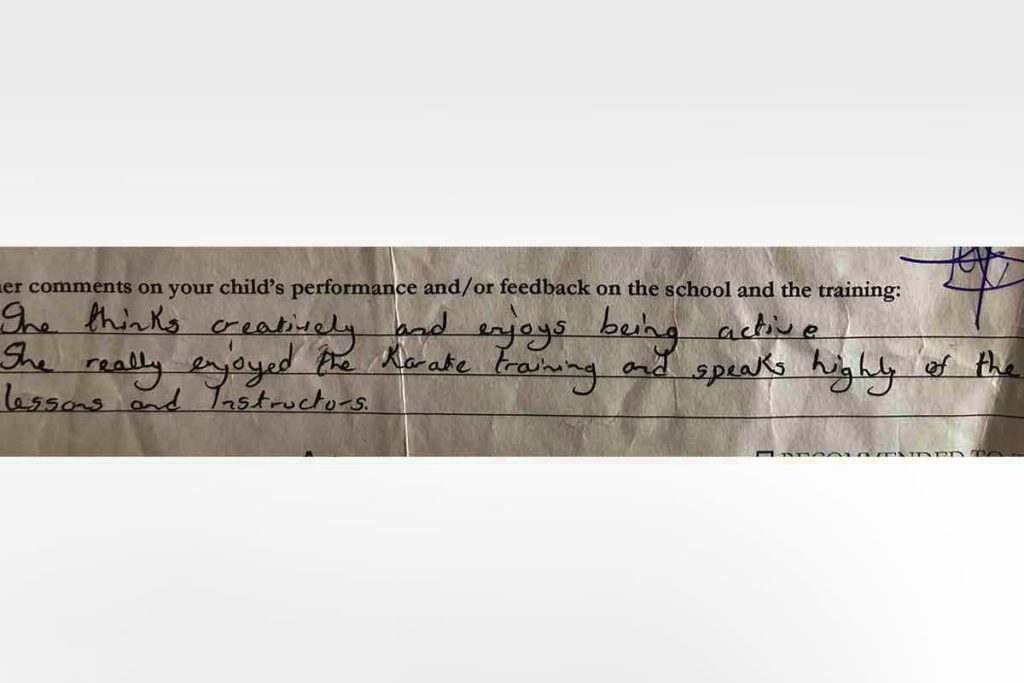 er comments on your child's performance and/or feedback on the school and the training:
She thinks creatively and enjoys being active
She really enjoyed the Karate training and speaks highly of the
lessons and Instructors.
RECOMMENDED TO